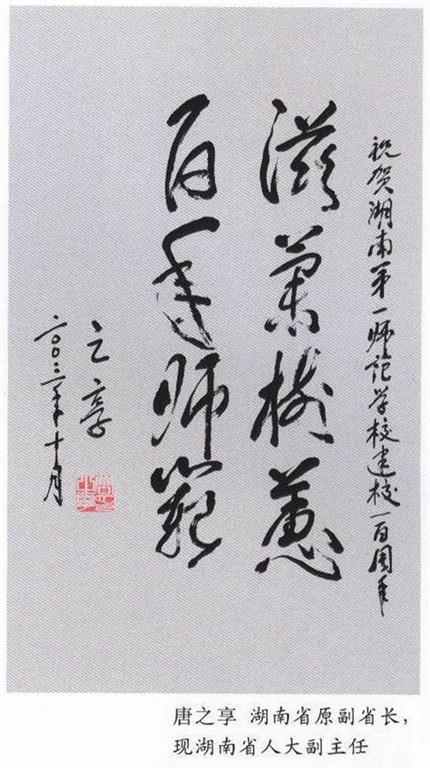 祝贺湖南第一师范学校建校一百周年
滋蘭樹蕙
百年师範
之享
二〇〇三年十月
唐之享 湖南省原副省长，
现湖南省人大副主任